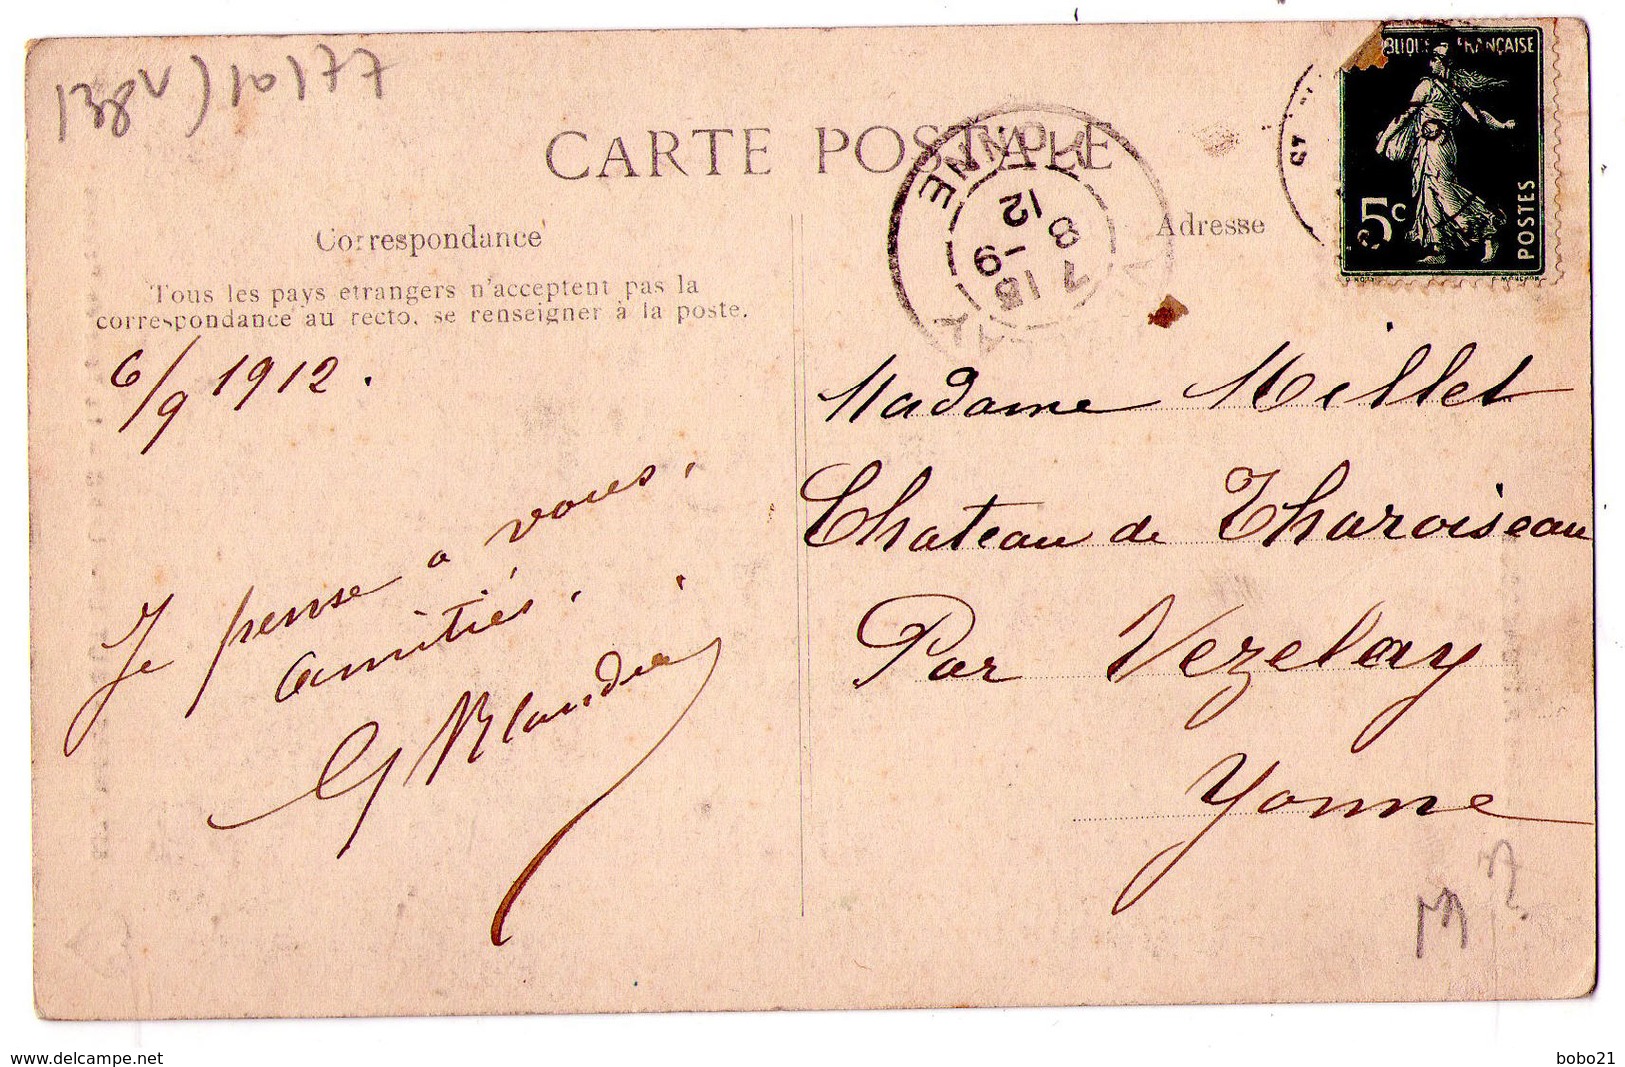 CARTE POSTALE
Correspondance
Adresse
Tous les pays étrangers n'acceptent pas la
correspondance au recto, se renseigner à la poste.
6/9 1912.
Je pense à vous.
amitiés.
Madame Millet
Chateau de Tharoiseau
Par Vezelay
Yonne
FRANÇAISE
5c
POSTES
YONNE
7 15
8 -9
12
www.delcampe.net
bobo21